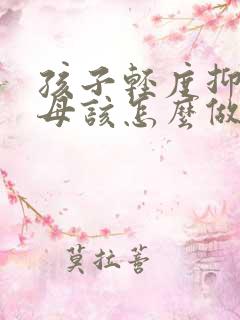 孩子輕度抑
母該怎麼做
莫拉菩